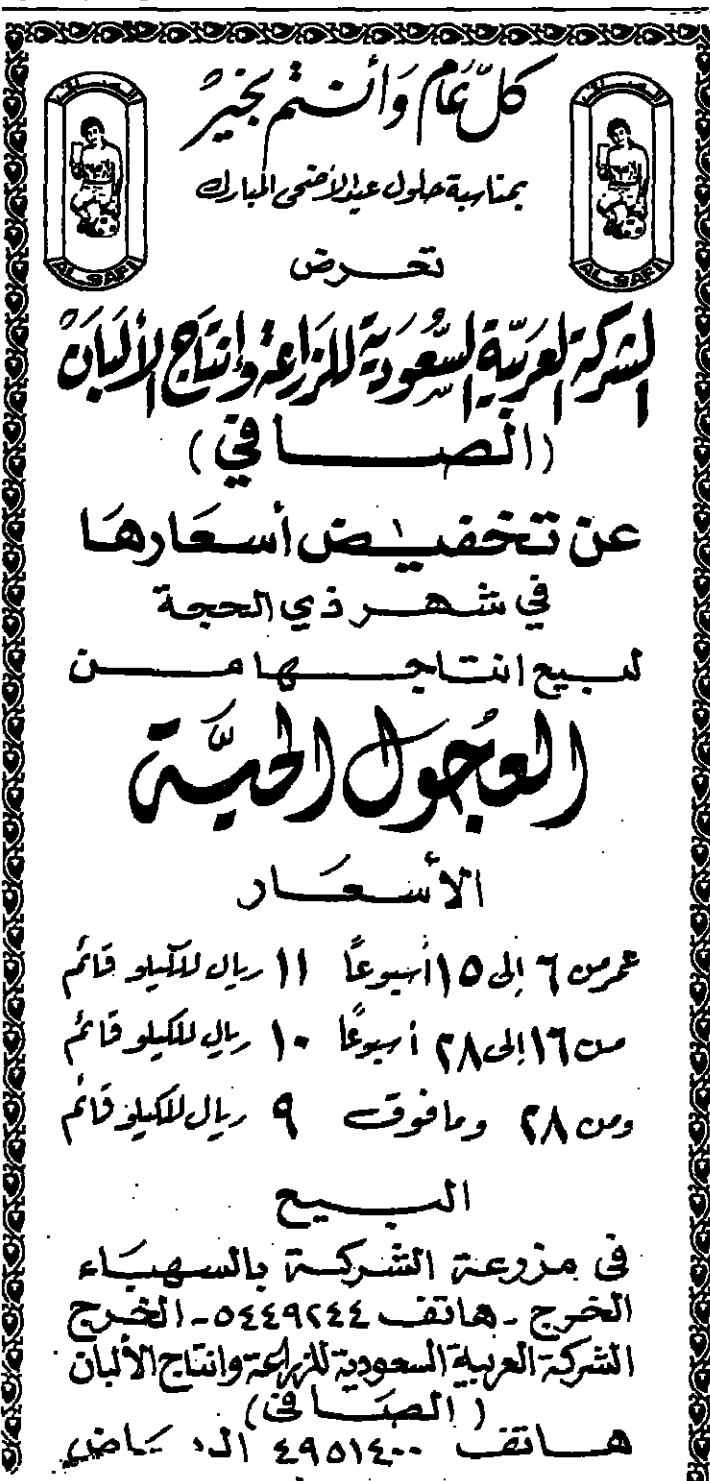 كل عام وأنتم بخير
بمناسبة حلول عيد الأضحى المبارك
تعرض
الشركة العربية السعودية للزراعة وإنتاج الألبان
(الصافي)
عن تخفيض أسعارها
في شهر ذي الحجة
لبيع انتاجها من
العجول الحية
الأسعار
عمر من ٦ إلى ١٥ أسبوعًا ١١ ريال للكيلو قائم
من ١٦ إلى ٢٨ أسبوعًا ١٠ ريال للكيلو قائم
ومن ٢٨ وما فوق ٩ ريال للكيلو قائم
البيع
في مزرعة الشركة بالسهباء
الخرج - هاتف ٥٤٤٩٢٤٤ - الخرج
الشركة العربية السعودية للزراعة وانتاج الألبان
(الصافي)
هاتف ٤٩٥١٤٠٠ الرياض
AL SAFI
AL SAFI